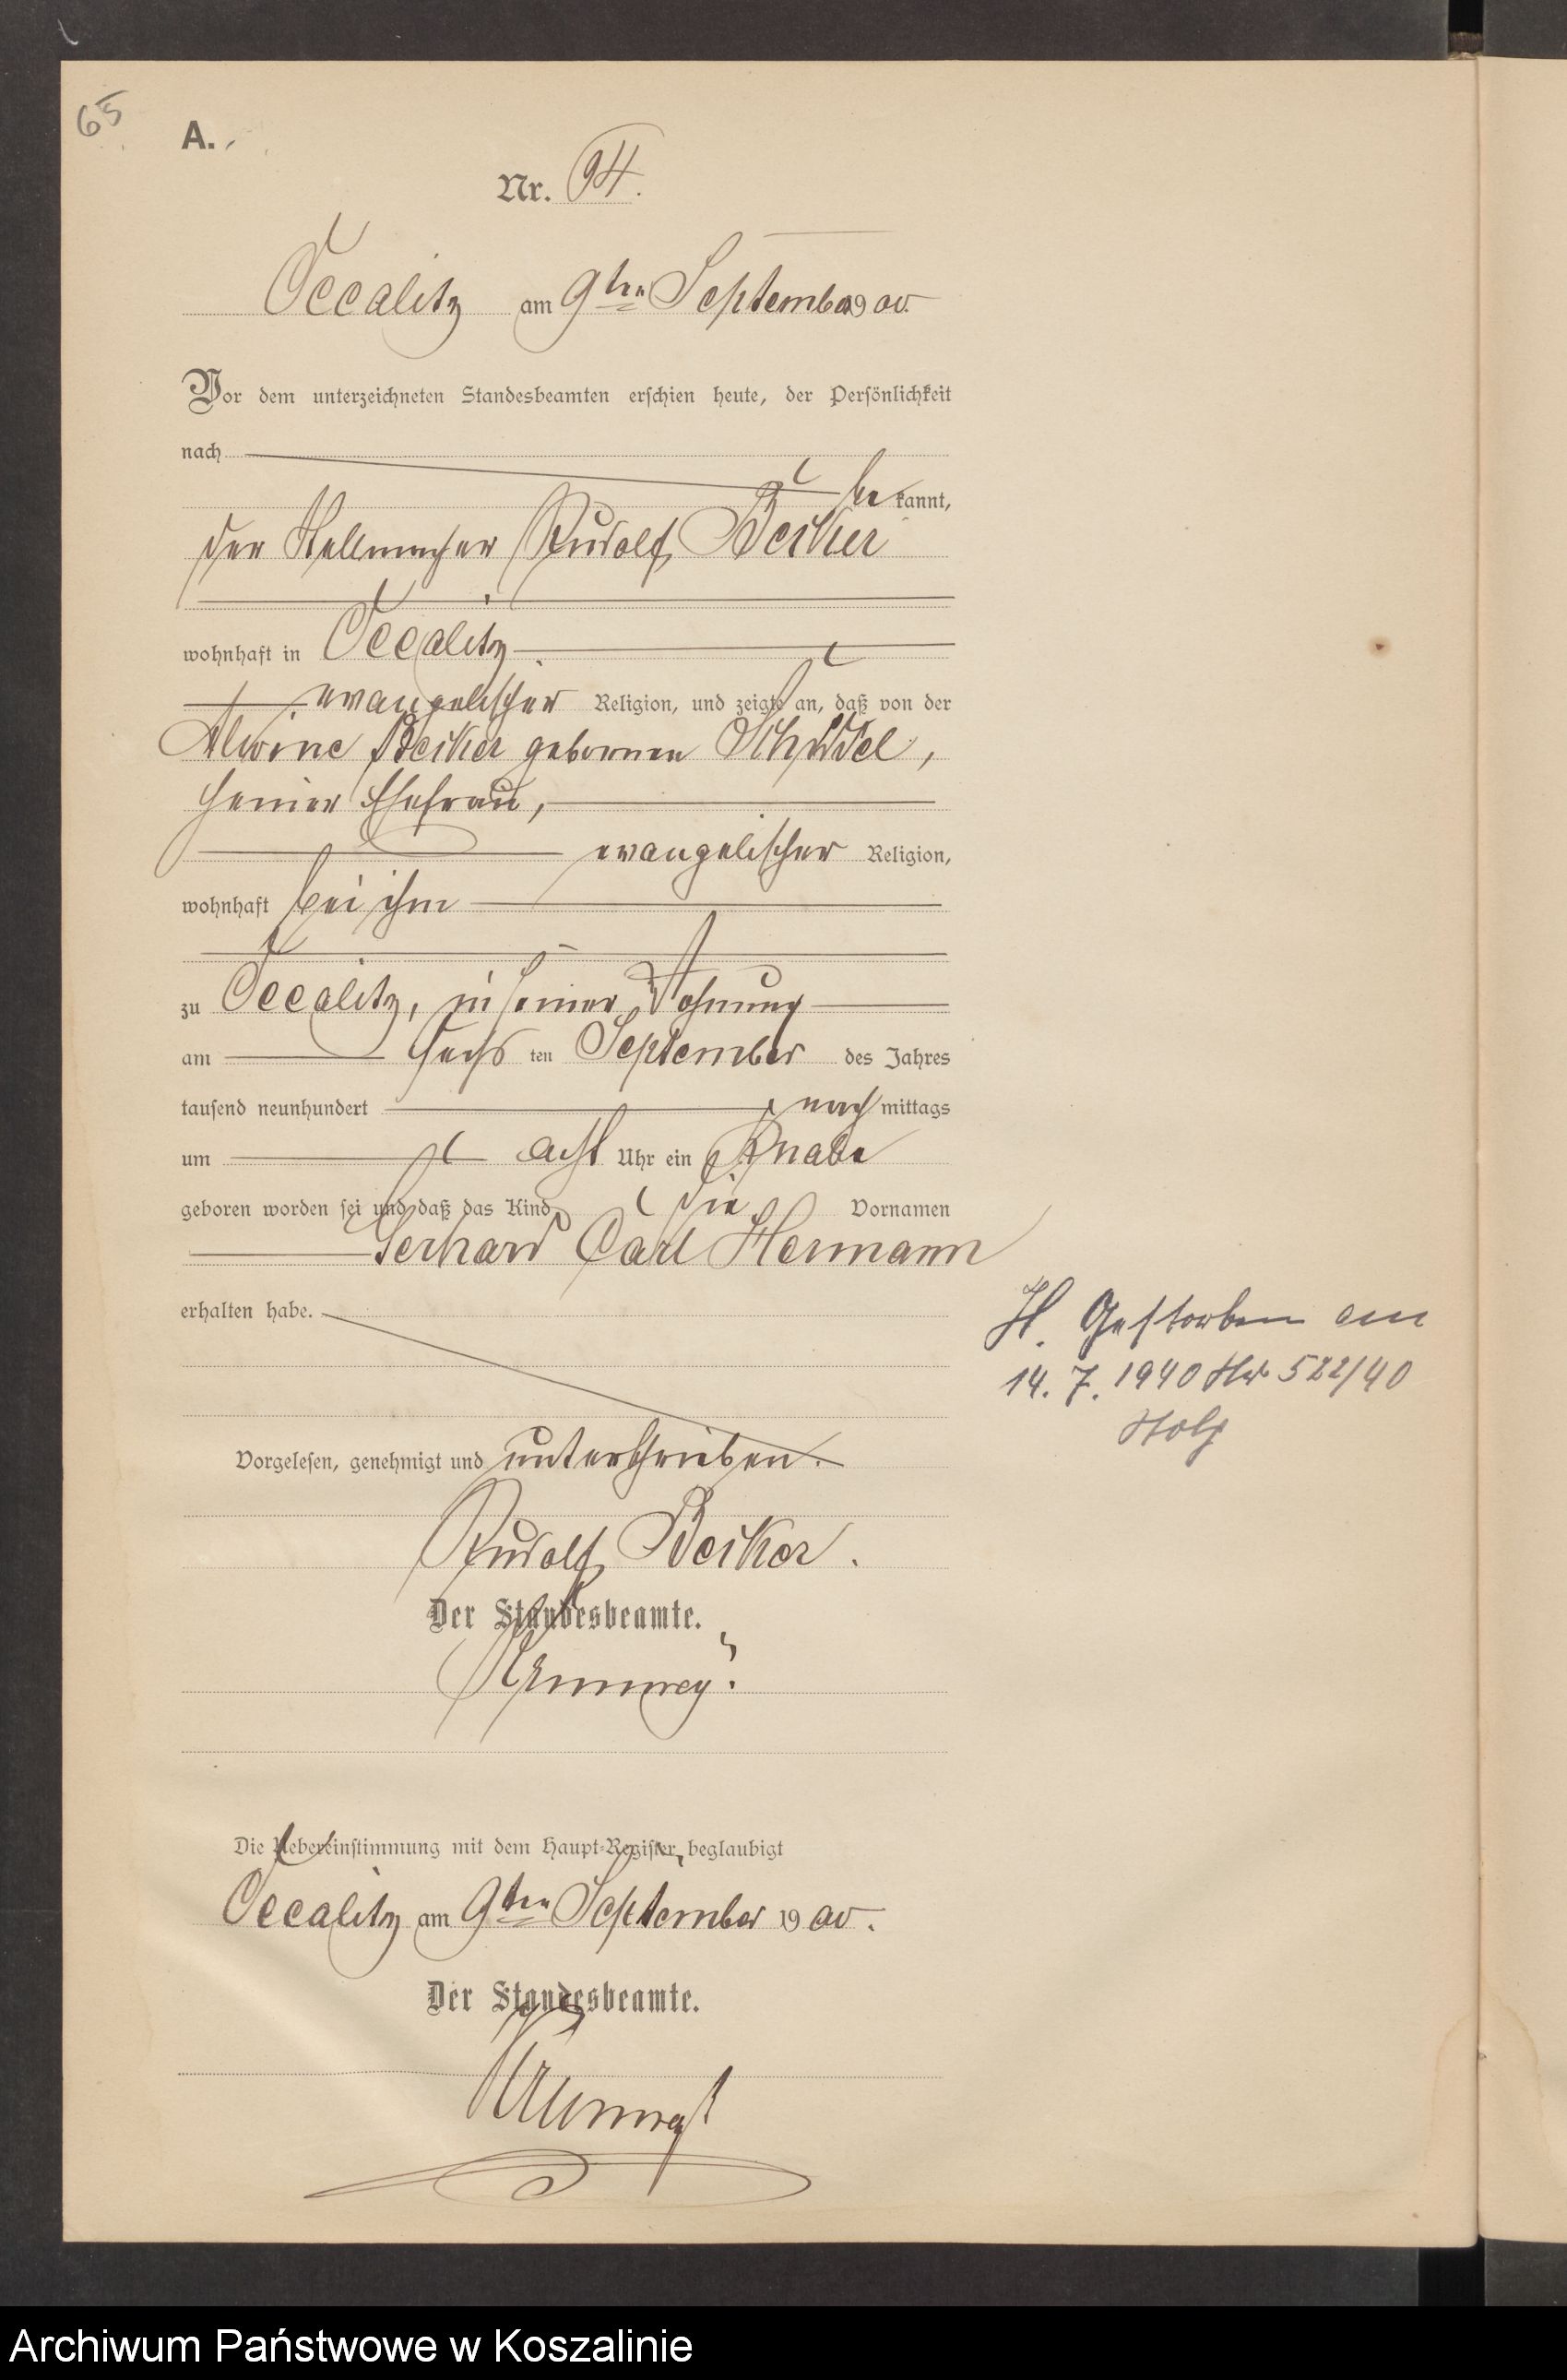 65
A.
Nr. 94.
Occalitz am 9ten September 1900.
Vor dem unterzeichneten Standesbeamten erschien heute, der Persönlichkeit
nach
be kannt,
der Stellmacher Rudolf Becker
wohnhaft in Occalitz
evangelischer Religion, und zeigte an, daß von der
Alwine Becker gebornen
seiner Ehefrau,
evangelischer Religion,
wohnhaft bei ihm
zu Occalitz, in seiner Wohnung
am sechs ten September des Jahres
tausend neunhundert nach mittags
um acht Uhr ein Knabe
geboren worden sei und daß das Kind die Vornamen
Gerhard Carl Hermann
erhalten habe.
H. Gestorben am
14. 7. 1940 522/40
Vorgelesen, genehmigt und unterschrieben.
Rudolf Becker.
Der Standesbeamte.
Die Uebereinstimmung mit dem Haupt-Register beglaubigt
Occalitz am 9ten September 1900.
Der Standesbeamte.
Archiwum Państwowe w Koszalinie